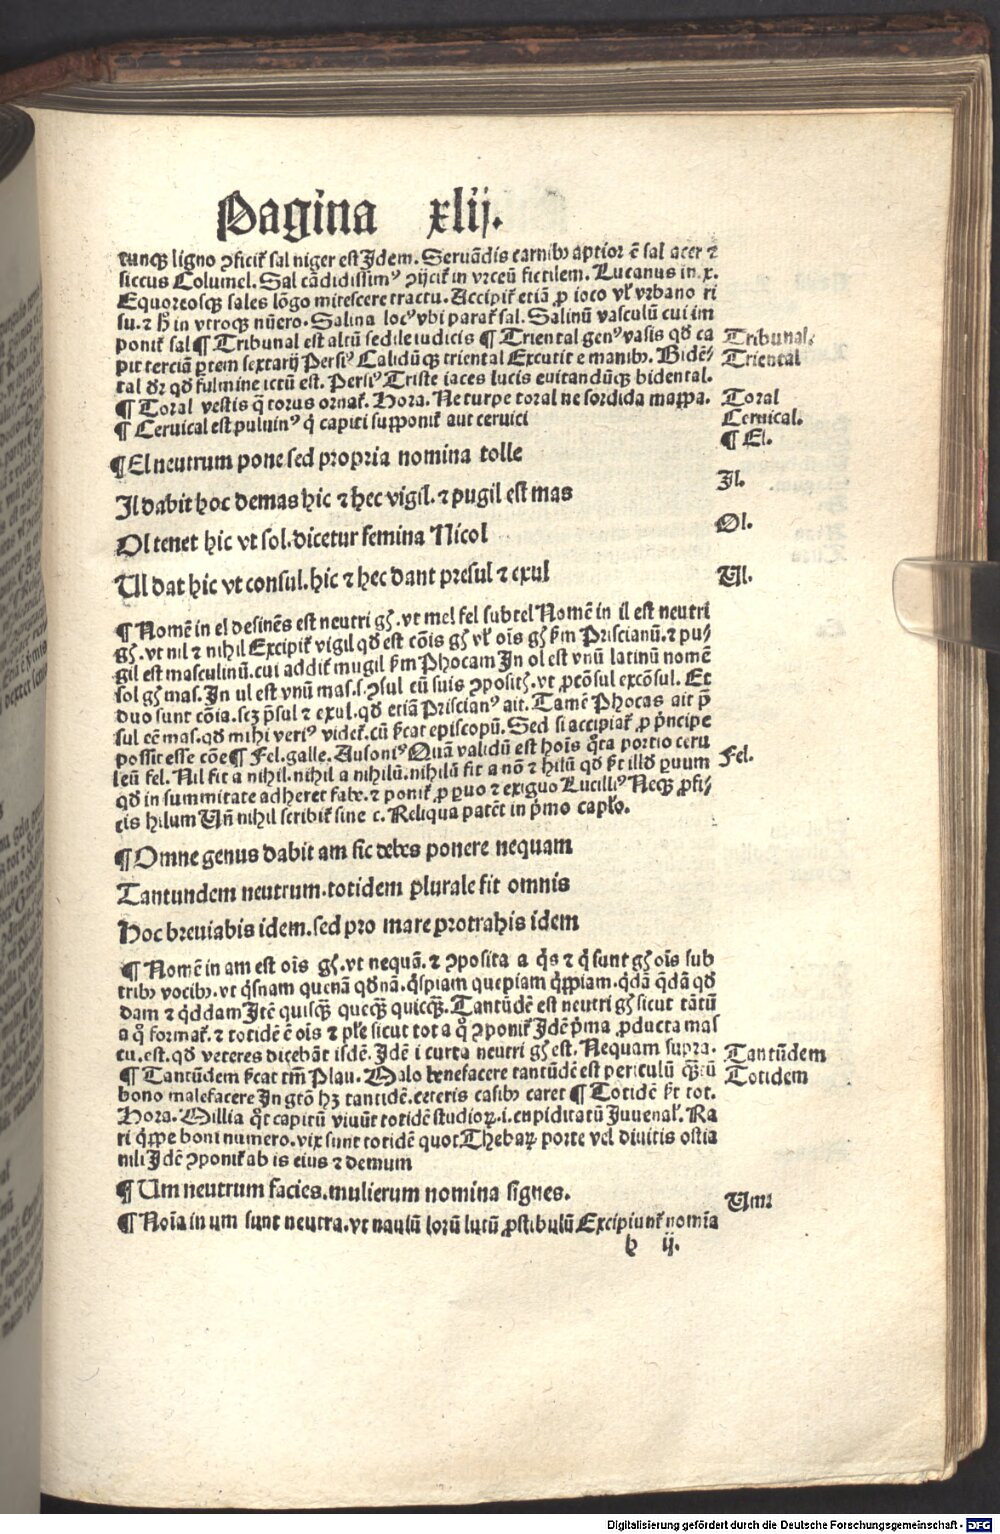 Pagina xlij.
cunqꝫ ligno ꝯficit᷑ sal niger est Idem. Seruãdis carnibꝰ aptior ē sal acer ⁊
siccus Columel. Sal cãdidissimꝰ ꝯijcit᷑ in vrceũ fictilem. Lucanus in.x.
Equoreosqꝫ sales lõgo mitescere tractu. Accipit᷑ etiã ꝓ ioco vl᷑ vrbano ri
su.⁊ ħ in vtroqꝫ nũero. Salina locꝰ vbi parat᷑ sal. Salinũ vasculũ cui im
ponit᷑ sal ¶ Tribunal est altũ sedile iudicis ¶ Triental genꝰ vasis qđ ca
pit terciã ꝑtem sextarij Persiꝰ Calidũqꝫ triental Excutit e manibꝰ. Bidē⸗
tal dr̄ qđ fulmine ictũ est. Persiꝰ Triste iaces lucis euitandũqꝫ bidental.
¶ Toral vestis q̃ torus ornat᷑. Hora. Ne turpe toral ne sordida mappa.
¶ Ceruical est puluinꝰ q̇ capiti supponit᷑ aut ceruici
¶ El neutrum pone sed propria nomina tolle
Il dabit hoc demas hic ⁊ hec vigil.⁊ pugil est mas
Ol tenet hic vt sol.dicetur femina Nicol
Ul dat hic vt consul.hic ⁊ hec dant presul ⁊ exul
¶ Nomē in el desinēs est neutri gñ.vt mel fel subtel Nomē in il est neutri
gñ.vt nil ⁊ nihil Excipit᷑ vigil qđ est cõis gñ vl᷑ oĩs gñ ẜm Priscianũ.⁊ pu⸗
gil est masculinũ.cui addit᷑ mugil ẜm Phocam In ol est vnũ latinũ nomē
sol gñ mas. In ul est vnũ mas.s.ꝯsul cũ suis ꝯpositꝭ.vt ꝓcõsul excõsul. Et
duo sunt cõia.scꝫ p̃sul ⁊ exul.qđ etiã Priscianꝰ ait. Tamē Phocas ait p̃
sul eē mas.qđ mihi veriꝰ videt᷑.cũ ẜicat episcopũ. Sed si accipiat᷑ ꝓ p̃ncipe
possit esse cõe ¶ Fel.galle. Ausoniꝰ Quã validũ est hoĩs q̃ta portio ceru
leũ fel. Nil fit a nihil.nihil a nihilũ.nihilũ fit a nõ ⁊ hilũ qđ ẜt illđ paruum
qđ in summitate adheret fabe.⁊ ponit᷑ ꝓ ꝑuo ⁊ exiguo Lucilliꝰ Neqꝫ ꝓfi⸗
cis hilum Uñ nihil scribit᷑ sine c. Reliqua patēt in p̃mo capl̃o.
¶ Omne genus dabit am sic debes ponere nequam
Tantundem neutrum.totidem plurale fit omnis
Hoc breuiabis idem.sed pro mare protrahis idem
¶ Nomē in am est oĩs gñ.vt nequã.⁊ ꝯposita a q̇s ⁊ q̇ sunt gñ oĩs sub
tribꝰ vocibꝰ.vt q̇snam quenã qđnã.q̇spiam quepiam q̇ppiam.q̇dã q̃dã qđ
dam ⁊ q̇ddam Itē quisqꝫ queqꝫ quicqꝫ. Tantũdē est neutri gñ sicut tãtũ
a q̊ format᷑.⁊ totidē ē oĩs ⁊ pl᷑e sicut tot a q̊ ꝯponit᷑ Idē p̃ma ꝓducta mas
cu.est.qđ veteres dicebãt isdē. Idē i curta neutri gñ est. Nequam supra.
¶ Tantũdem ẜicat tm̃ Plau. Malo benefacere tantũdē est periculũ qꝫtũ
bono malefacere In gtõ hꝫ tantidē.ceteris casibꝰ caret ¶ Totidē ẜt tot.
Hora. Millia q̊t capitũ viuũt totidē studioꝝ.i.cupiditatũ Iuuenal᷑. Ra
ri q̇ppe boni numero.vix sunt totidē quot Thebaꝝ porte vel diuitis ostia
nili Idē ꝯponit᷑ ab is eius ⁊ demum
¶ Um neutrum facies.mulierum nomina signes.
¶ Noĩa in um sunt neutra.vt naulũ lorũ lutũ ꝓstibulũ Excipiunt᷑ nomĩa
h ij.
Tribunal.
Triental
Toral
Ceruical.
¶ El.
Il.
Ol.
Ul.
Fel.
Tantũdem
Totidem
Um.
Digitalisierung gefördert durch die Deutsche Forschungsgemeinschaft - DFG